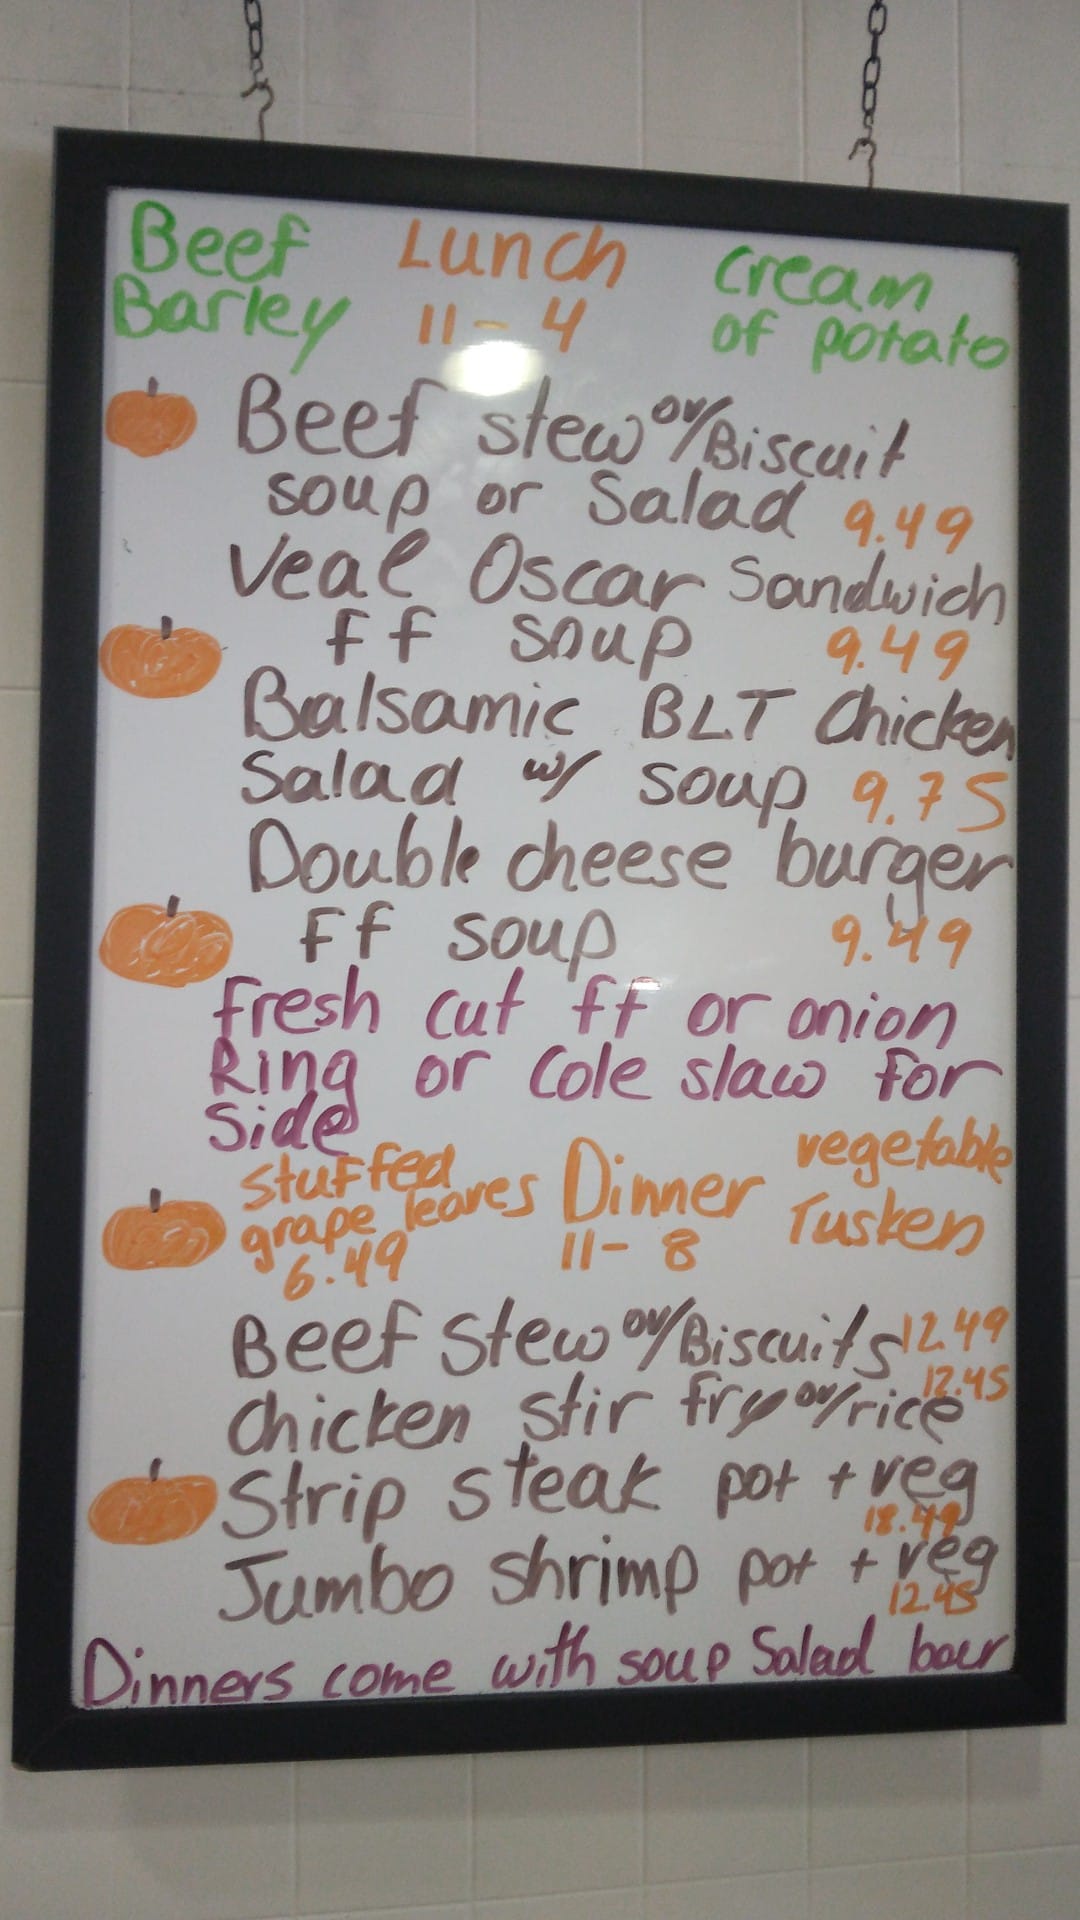 Beef Lunch Cream
Barley 11 - 4 of potato
Beef stew ov/Biscuit
soup or Salad 9.49
Veal Oscar Sandwich
ff soup 9.49
Balsamic BLT Chicken
Salad w/ soup 9.75
Double cheese burger
ff soup 9.49
fresh cut ff or onion
Ring or Cole slaw for
side
stuffed
grape leaves
6.49
Dinner
11 - 8
vegetable
Tusken
Beef Stew ov/Biscuits 12.49
Chicken stir fry ov/rice 12.45
Strip steak pot + veg
18.49
Jumbo shrimp pot + veg
12.45
Dinners come with soup Salad bar